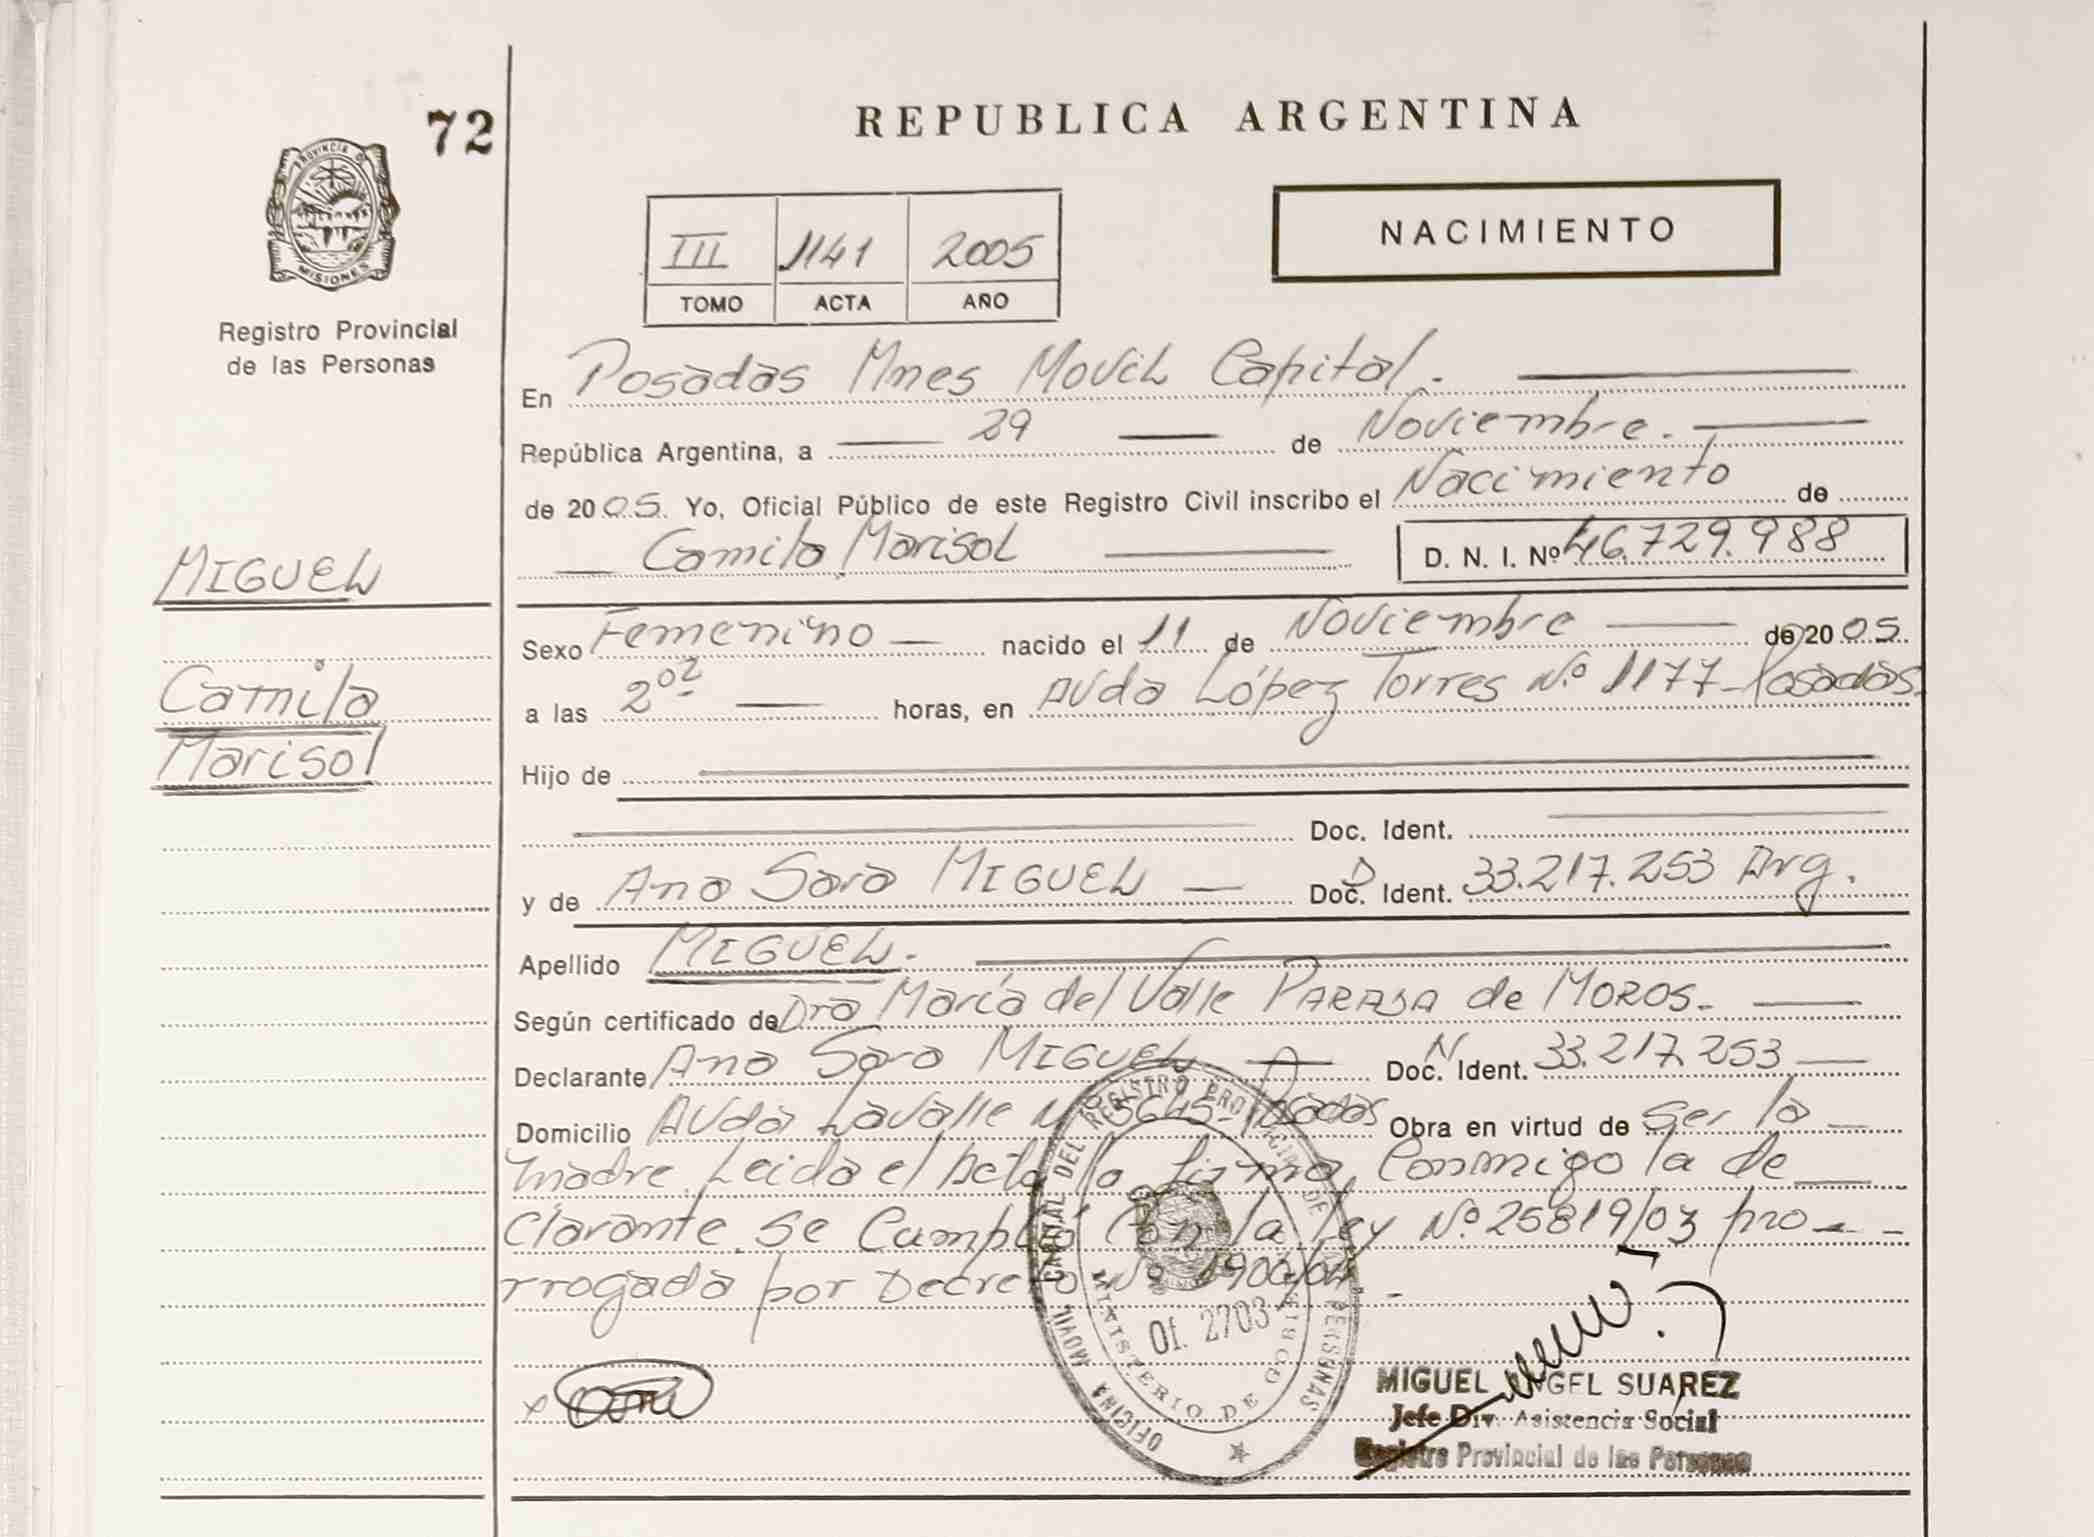 72
PROVINCIA D
MISIONES
Registro Provincial
de las Personas
MIGUEL
Camila
Marisol
REPUBLICA ARGENTINA
III 1141 2005
TOMO ACTA AÑO
NACIMIENTO
En Posadas Mnes Movil Capital.
República Argentina, a 29 de Noviembre.
de 2005. Yo, Oficial Público de este Registro Civil inscribo el Nacimiento de
Camila Marisol D. N. I. Nº 46.729.988
Sexo Femenino nacido el 11 de Noviembre de 2005.
a las 2⁰² horas, en Avda López Torres Nº 1177 - Posadas.
Hijo de
Doc. Ident.
y de Ana Sara MIGUEL D Doc. Ident. 33.217.253 Arg.
Apellido MIGUEL.
Según certificado de Dra María del Valle de MOROS.
Declarante Ana Sara MIGUEL N Doc. Ident. 33.217.253
Domicilio Avda Lavalle Nº 5645 - Posadas Obra en virtud de ser la
madre. Leida el Acta la firma Conmigo la de
clarante. Se Cumplió Con la Ley Nº 25819/03 pro
rrogada por Decreto Nº
OFICINA MOVIL CAPITAL DEL REGISTRO PROVINCIAL DE LAS PERSONAS
MINISTERIO DE GOBIERNO
Of. 2703
x
MIGUEL ANGEL SUAREZ
Jefe Div. Asistencia Social
Registro Provincial de las Personas